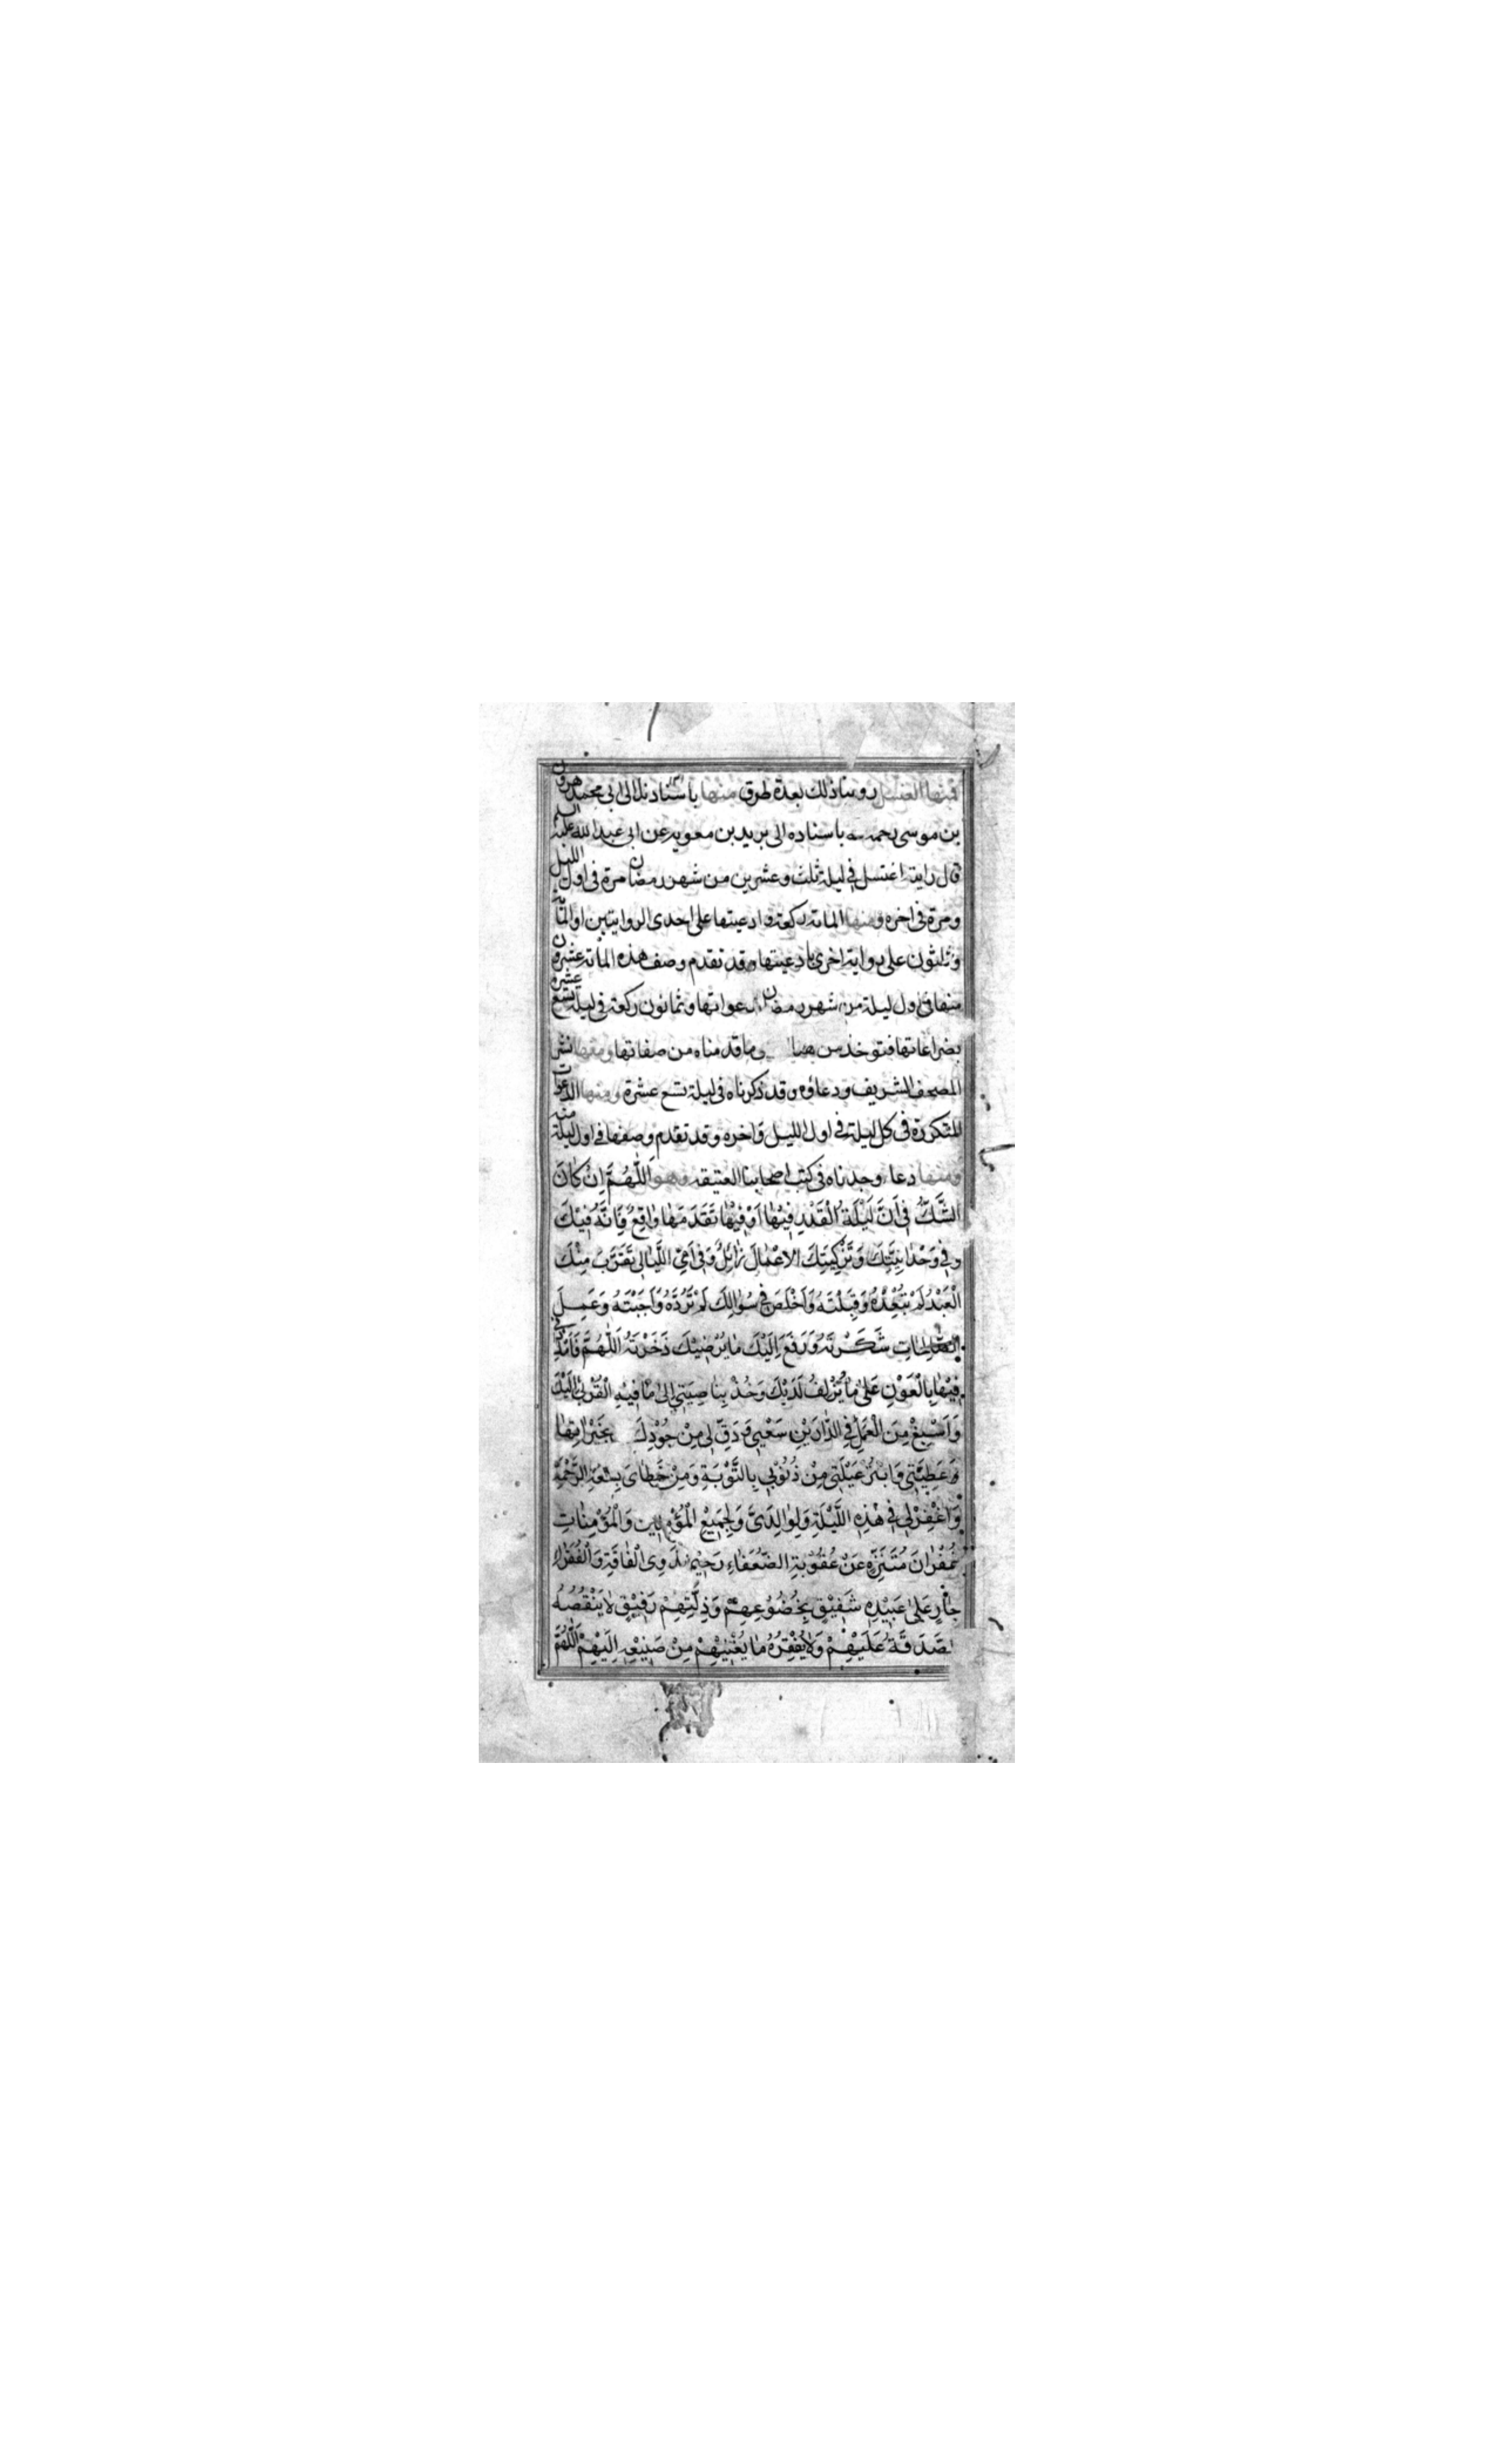 فمنها الغسل روينا ذلك بعدة طرق منها باسنادنا الى ابى محمد هرون
بن موسى رحمه باسناده الى بريد بن معويه عن ابى عبد الله عليه السلم
قال رايته اغتسل فى ليلة ثلث وعشرين من شهر رمضان مرة فى اول الليل
ومرة فى اخره ومنها المائة ركعة وادعيتها على احدى الروايتين او المائة
وثلثون على رواية اخرى بادعيتها وقد تقدم وصف هذه المائة عشرون
منها فى اول ليلة من شهر رمضان بدعواتها وثمانون ركعة فى ليلة تسع عشرة
بضراعاتها فتوخذ من ما قدمناه من صفاتها ومنها نشر
المصحف الشريف ودعاؤه وقد ذكرناه فى ليلة تسع عشرة ومنها الدعوات
المتكررة فى كل ليلة فى اول الليل واخره وقد تقدم وصفها فى اول ليلة منه
ومنها دعاء وجدناه فى كتب اصحابنا العتيقه وهو اَللّٰهُمَّ اِنْ كَانَ
الشَّكُّ فِى اَنَّ لَيْلَةَ الْقَدْرِ فِيْهَا اَوْ فِيْمَا تَقَدَمَهَا وَاقِعٌ فَاِنَّهُ فِيْكَ
وَفِى وَحْدَانِيَّتِكَ وَتَزْكِيَتِكَ الاَعْمَالَ زَائِلٌ وَفِى اَىِّ اللَّيَالِى تَقَرَّبَ مِنْكَ
الْعَبْدُ لَمْ تُبْعِدْهُ وَقَبِلْتَهُ وَاَخْلَصَ فِى سُؤَالِكَ لَمْ تَرُدَّهُ وَاَجَبْتَهُ وَعَمِلَ
الصَّالِحَاتِ شَكَرْتَهُ وَرَفَعَ اِلَيْكَ مَا يُرْضِيْكَ ذَخَرْتَهُ اَللّٰهُمَّ فَاَمِدَّنِى
فِيْهَا بِالْعَوْنِ عَلَى مَا يُزْلِفُ لَدَيْكَ وَخُذْ بِنَاصِيَتِى اِلَى مَا فِيْهِ الْقُرْبَى اِلَيْكَ
وَاَسْبِغْ مِنَ الْعَمَلِ فِى الدَّارَيْنِ سَعْيِى وَرَقِّ لِى مِنْ جُوْدِكَ بِخَيْرَاتِهَا
عَطِيَّتِى وَابْتُرْ عَيْلَتِى مِنْ ذُنُوْبِى بِالتَّوْبَةِ وَمِنْ خَطَايَاىَ بِسَعَةِ الرَّحْمَةِ
وَاغْفِرْ لِى فِى هٰذِهِ اللَّيْلَةِ وَلِوَالِدَىَّ وَلِجَمِيْعِ الْمُؤْمِنِيْنَ وَالْمُؤْمِنَاتِ
غُفْرَانَ مُتَنَزِّهٍ عَنْ عُقُوْبَةِ الضُّعَفَاءِ رَحِيْمٍ بِذَوِى الْفَاقَةِ وَالْفُقَرَاءِ
عَلَى عَبِيْدِهِ شَفِيْقٍ بِخُضُوْعِهِمْ وَذِلَّتِهِمْ رَفِيْقٍ لَا يَنْقُصُهُ
الصَّدَقَةُ عَلَيْهِمْ وَلَا يُفْقِرُهُ مَا يُغْنِيْهِمْ مِنْ صَنِيْعِهِ اِلَيْهِمْ اَللّٰهُمَّ